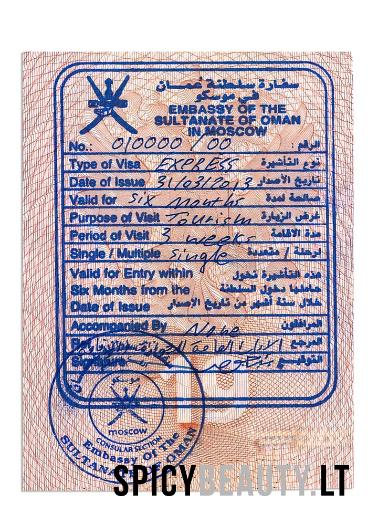 سفارة سلطنة عمان
في موسكو
EMBASSY OF THE
SULTANATE OF OMAN
IN MOSCOW
No.: 010000 / 00 الرقم:
Type of Visa EXPRESS نوع التأشيرة
Date of Issue 31/03/2013 تاريخ الأصدار
Valid for Six months صالحة لمدة
Purpose of Visit Tourism غرض الزيارة
Period of Visit 3 weeks مدة الاقامة
Single / Multiple Single لرحلة / متعددة
Valid for Entry within هذه التأشيرة تخول
Six Months from the حاملها دخول السلطنة
Date of Issue خلال ستة أشهر من تاريخ الاصدار
Accompanied By None المرافقون
المرجع
التوقيع
موسكو
moscow
CONSULAR SECTION
Embassy Of The
SULTANATE OF OMAN
10
SPICYBEAUTY.LT